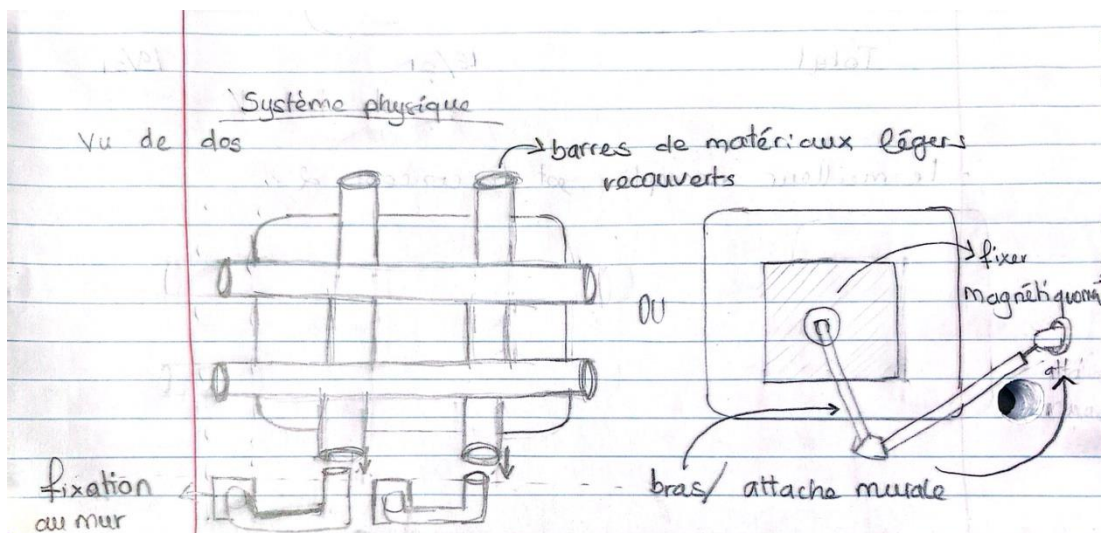 Total
Système physique
Vu de dos
barres de matériaux légers
recouverts
fixer
magnétiquement
OU
bras/ attache murale
fixation
au mur